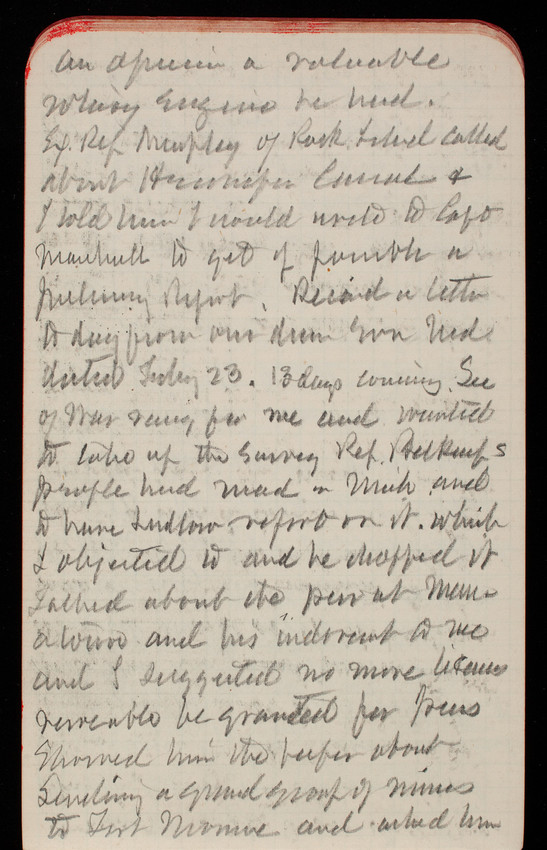 an opinion a valuable
rotary Engine he had.
Ex. Rep Murphy of Rock Island called
about Hennepin Canal &
I told him I would write to Capt
Marshall to get if possible a
Report. Recived a letter
to day from our dear Son Ned
dated July 23. 13 days coming. Sec
of War rang for me and wanted
to take up the Survey Rep. Belknaps
people had mad in Mich and
to have Ludlow report on it. which
I objected to and he dropped it
Talked about the pier at
and his to me
and I suggested no more licenses
revocable be granted for
Showed him the paper about
Sending a grand group of mines
to Fort Monroe and asked him